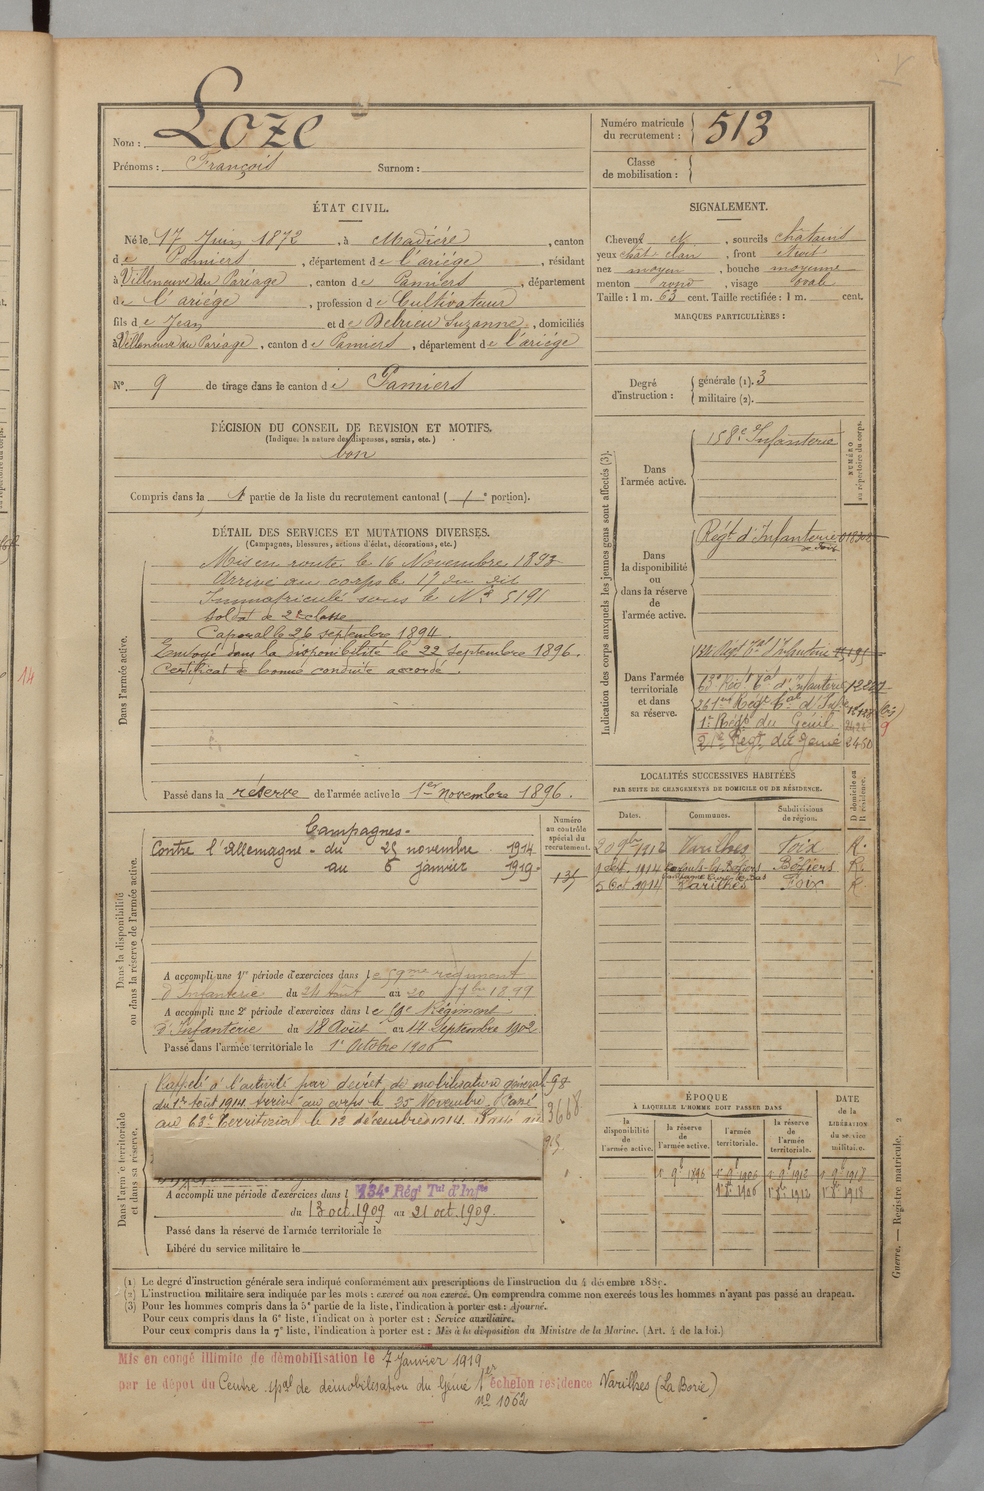 Nom : Loze
Prénoms : François Surnom :
Numéro matricule du recrutement : 513
Classe de mobilisation :
ÉTAT CIVIL.
Né le 17 Juin 1872, à Madière, canton
de Pamiers, département de l'ariége, résidant
à Villeneuve du Pariage, canton de Pamiers, département
de l'ariége, profession de Cultivateur
fils de Jean et de Debrieu Suzanne, domiciliés
à Villeneuve du Pariage, canton de Pamiers, département de l'ariége
N° 9 de tirage dans le canton de Pamiers
SIGNALEMENT.
Cheveux et, sourcils châtains
yeux chât. clair, front étroit
nez moyen, bouche moyenne
menton rond, visage ovale
Taille : 1 m. 63 cent. Taille rectifiée : 1 m. cent.
MARQUES PARTICULIÈRES :
Degré d'instruction : générale (1). 3
militaire (2).
DÉCISION DU CONSEIL DE REVISION ET MOTIFS.
(Indiquer la nature des dispenses, sursis, etc.)
bon
Compris dans la 1 partie de la liste du recrutement cantonal ( portion).
DÉTAIL DES SERVICES ET MUTATIONS DIVERSES.
(Campagnes, blessures, actions d'éclat, décorations, etc.)
Dans l'armée active.
Mis en route le 16 Novembre 1893
Arrivé au corps le 17 du dit
Immatriculé sous le N° 5191
Soldat de 2e classe
Caporal le 26 septembre 1894.
Envoyé dans la disponibilité le 22 septembre 1896.
Certificat de bonne conduite accordé.
Passé dans la réserve de l'armée active le 1er novembre 1896.
Indication des corps auxquels les jeunes gens sont affectés (3).
NUMÉRO au répertoire du corps.
Dans l'armée active.
158e Infanterie
Dans la disponibilité ou dans la réserve de l'armée active.
Régt d'Infanterie
de Foix
Dans l'armée territoriale et dans sa réserve.
134e Régt Tal d'Infanterie
Régt Tal d'Infanterie
261me Régt Tal d'Infie
1er Régt du Génie
21e Régt du Génie 2450
LOCALITÉS SUCCESSIVES HABITÉES
PAR SUITE DE CHANGEMENTS DE DOMICILE OU DE RÉSIDENCE.
Dates. Communes. Subdivisions de région. D domicile ou R résidence.
20 9bre 1912 Varilhes Foix R.
1 Sept. 1914 Béziers R.
5 Oct. 1914 Varilhes Foix R
Dans la disponibilité ou dans la réserve de l'armée active.
Numéro au contrôle spécial du recrutement.
137
Campagnes -
Contre l'Allemagne - du 25 novembre 1914
au 6 janvier 1919 -
A accompli une 1re période d'exercices dans le 59me régiment
d'Infanterie du 24 Août au 20 7bre 1899
A accompli une 2e période d'exercices dans le 59e Régiment
d'Infanterie du 18 Août au 14 Septembre 1902
Passé dans l'armée territoriale le 1er Octobre 1906
Dans l'armée territoriale et dans sa réserve.
Rappelé à l'activité par décret de mobilisation général
du 1er Août 1914. Arrivé au corps le 25 Novembre. Passé
au 63e Territorial le 12 décembre 1914.
98
3668
A accompli une période d'exercices dans l 134e Régt Tal d'Infie
du 13 oct. 1909 au 21 oct. 1909.
Passé dans la réserve de l'armée territoriale le
Libéré du service militaire le
ÉPOQUE
À LAQUELLE L'HOMME DOIT PASSER DANS
la disponibilité de l'armée active. la réserve de l'armée active. l'armée territoriale. la réserve de l'armée territoriale. DATE de la LIBÉRATION du service militaire.
1er 9bre 1896 1er 9bre 1906 1er 9bre 1912 1er 9bre 1918
1er 8bre 1906 1er 8bre 1912 1er 8bre 1918
Guerre. — Registre matricule. 2
(1) Le degré d'instruction générale sera indiqué conformément aux prescriptions de l'instruction du 4 décembre 1889.
(2) L'instruction militaire sera indiquée par les mots : exercé ou non exercé. On comprendra comme non exercés tous les hommes n'ayant pas passé au drapeau.
(3) Pour les hommes compris dans la 5e partie de la liste, l'indication à porter est : Ajourné.
Pour ceux compris dans la 6e liste, l'indication à porter est : Service auxiliaire.
Pour ceux compris dans la 7e liste, l'indication à porter est : Mis à la disposition du Ministre de la Marine. (Art. 4 de la loi.)
Mis en congé illimité de démobilisation le 7 Janvier 1919
par le dépôt du Centre spal de démobilisation du Génie 1er échelon résidence Varilhes (La Borie)
no 1062